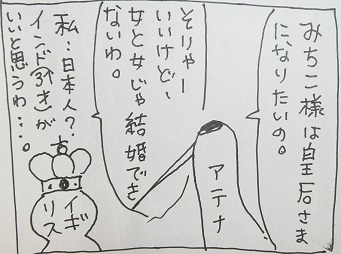 みちこ様は皇后さま
になりたいの。
そりゃー
いいけど、
女と女じゃ結婚でき
ないわ。
アテナ
私:日本人?
インド(行き)が
いいと思うわ…。
イギ
リス